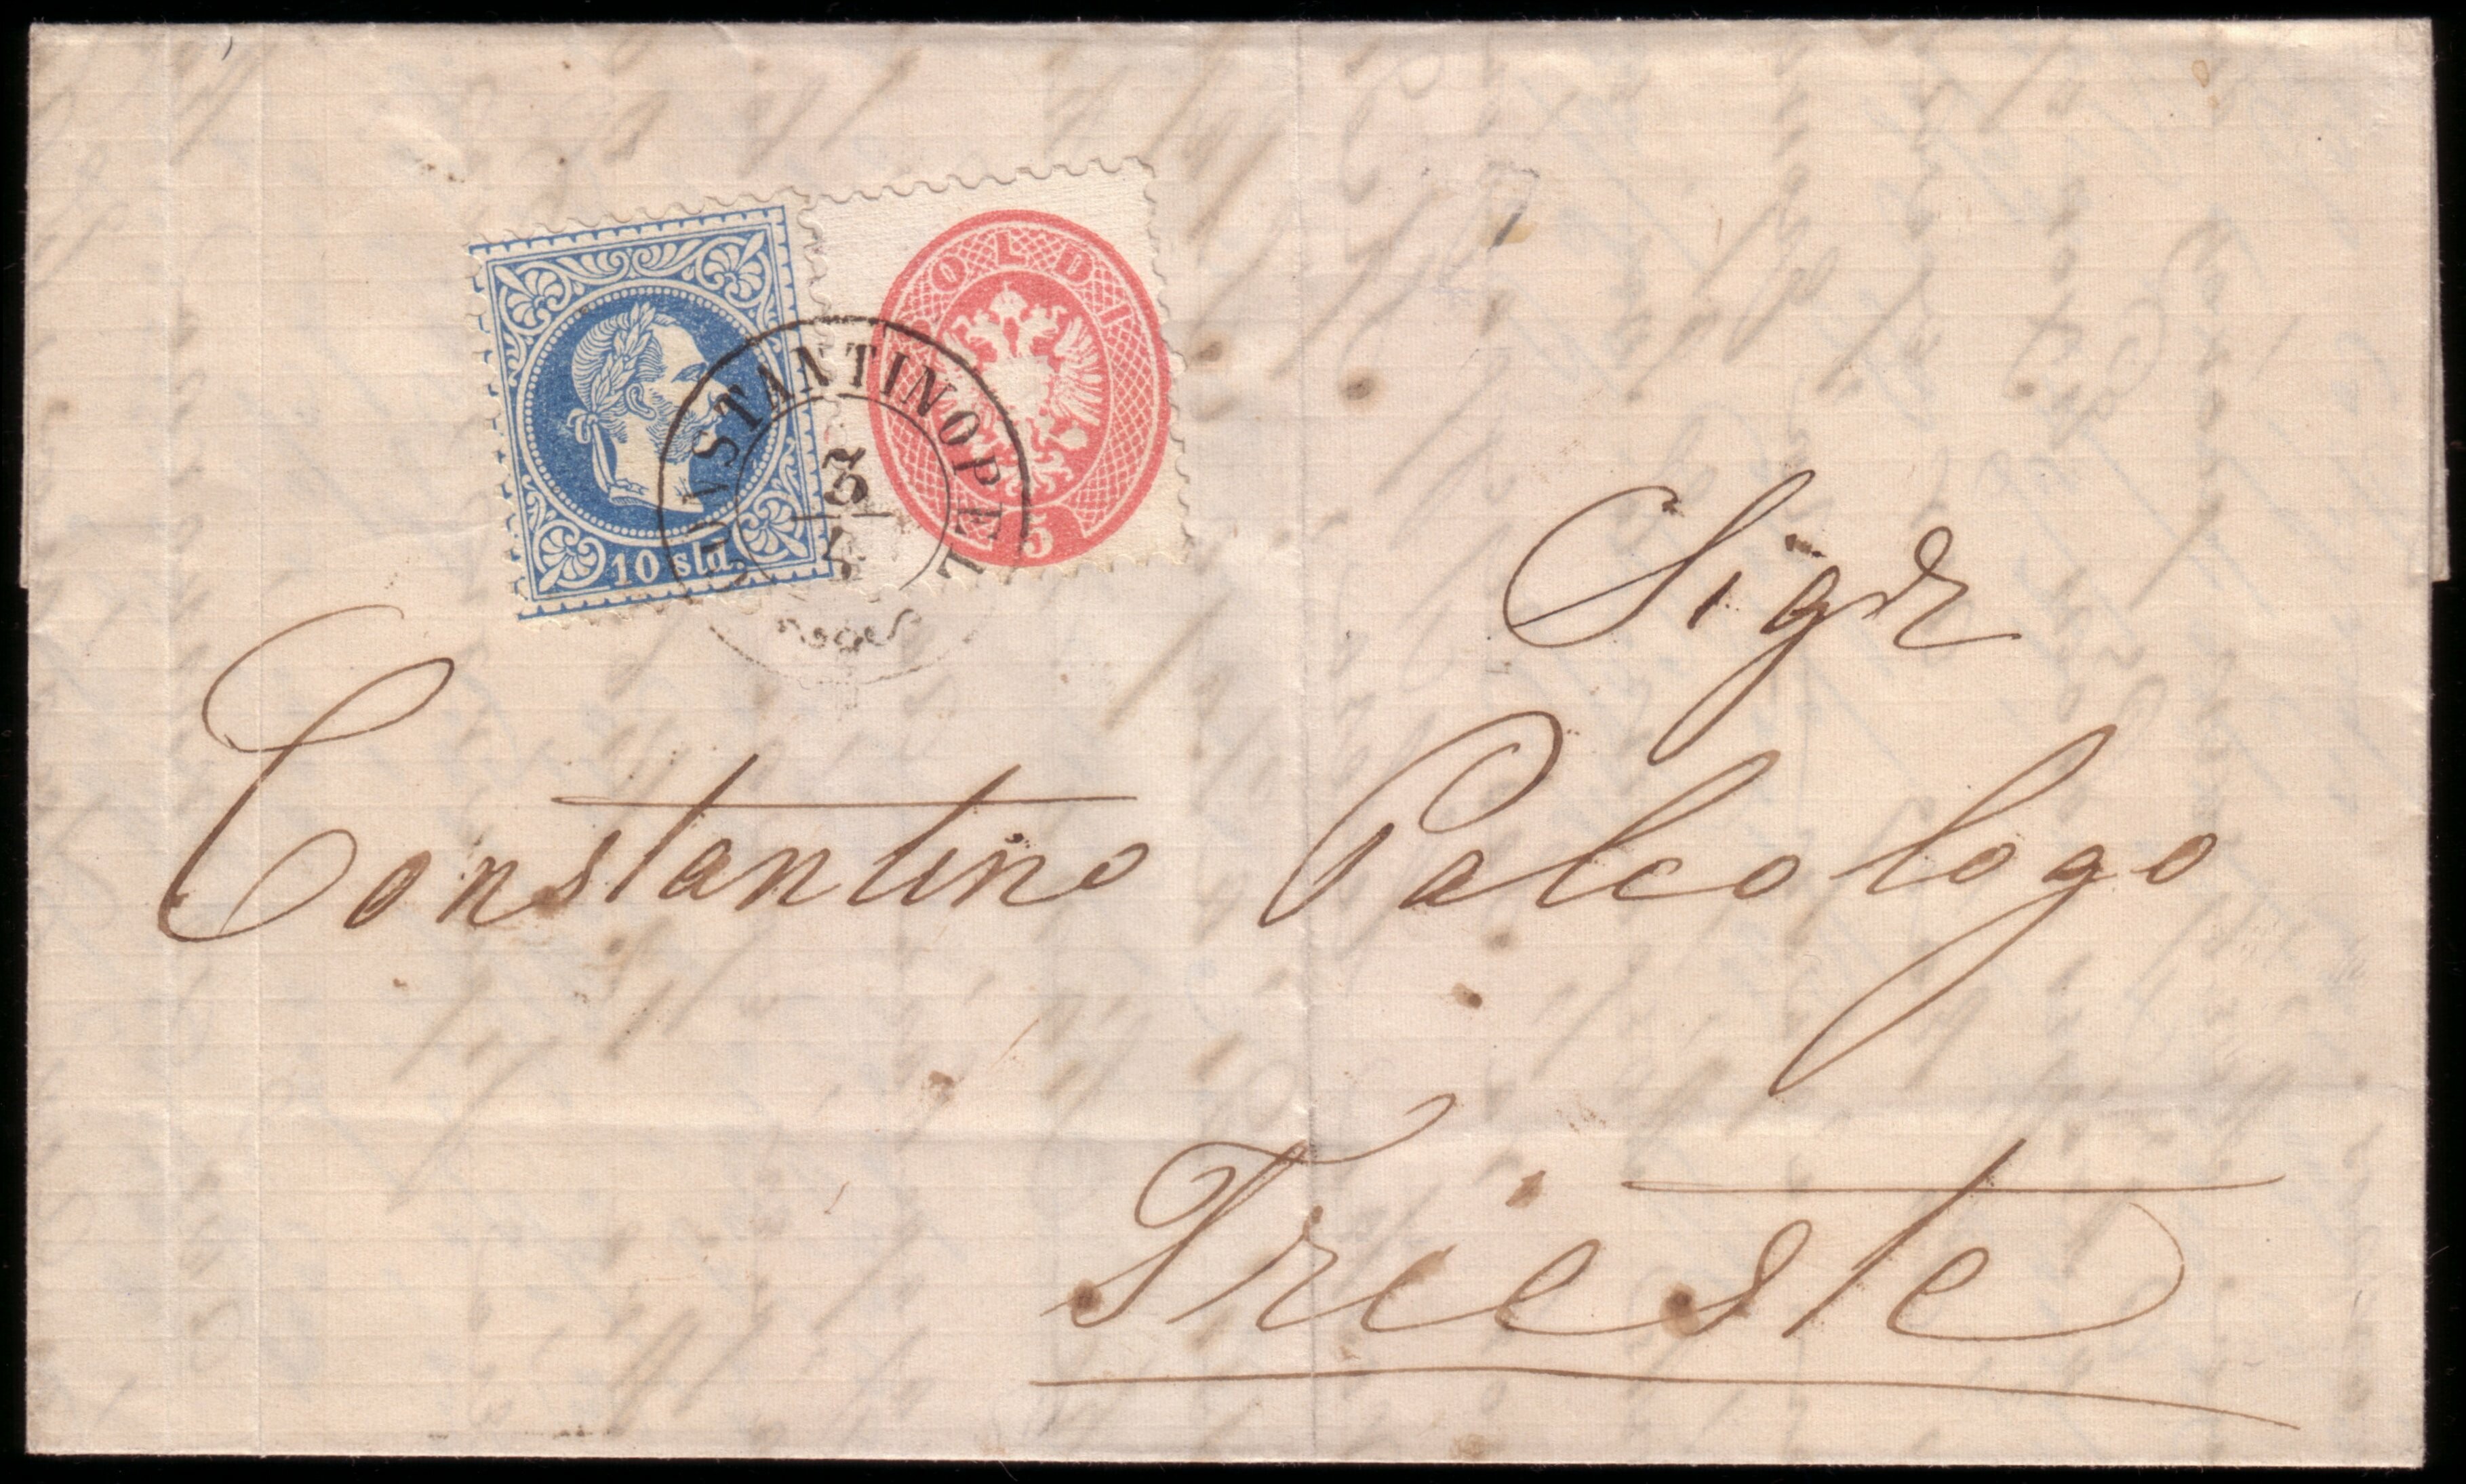 SOLDI
CONSTANTINOPEL
3
4
5
10 sld
Sigr
Constantino Paleologo
Trieste